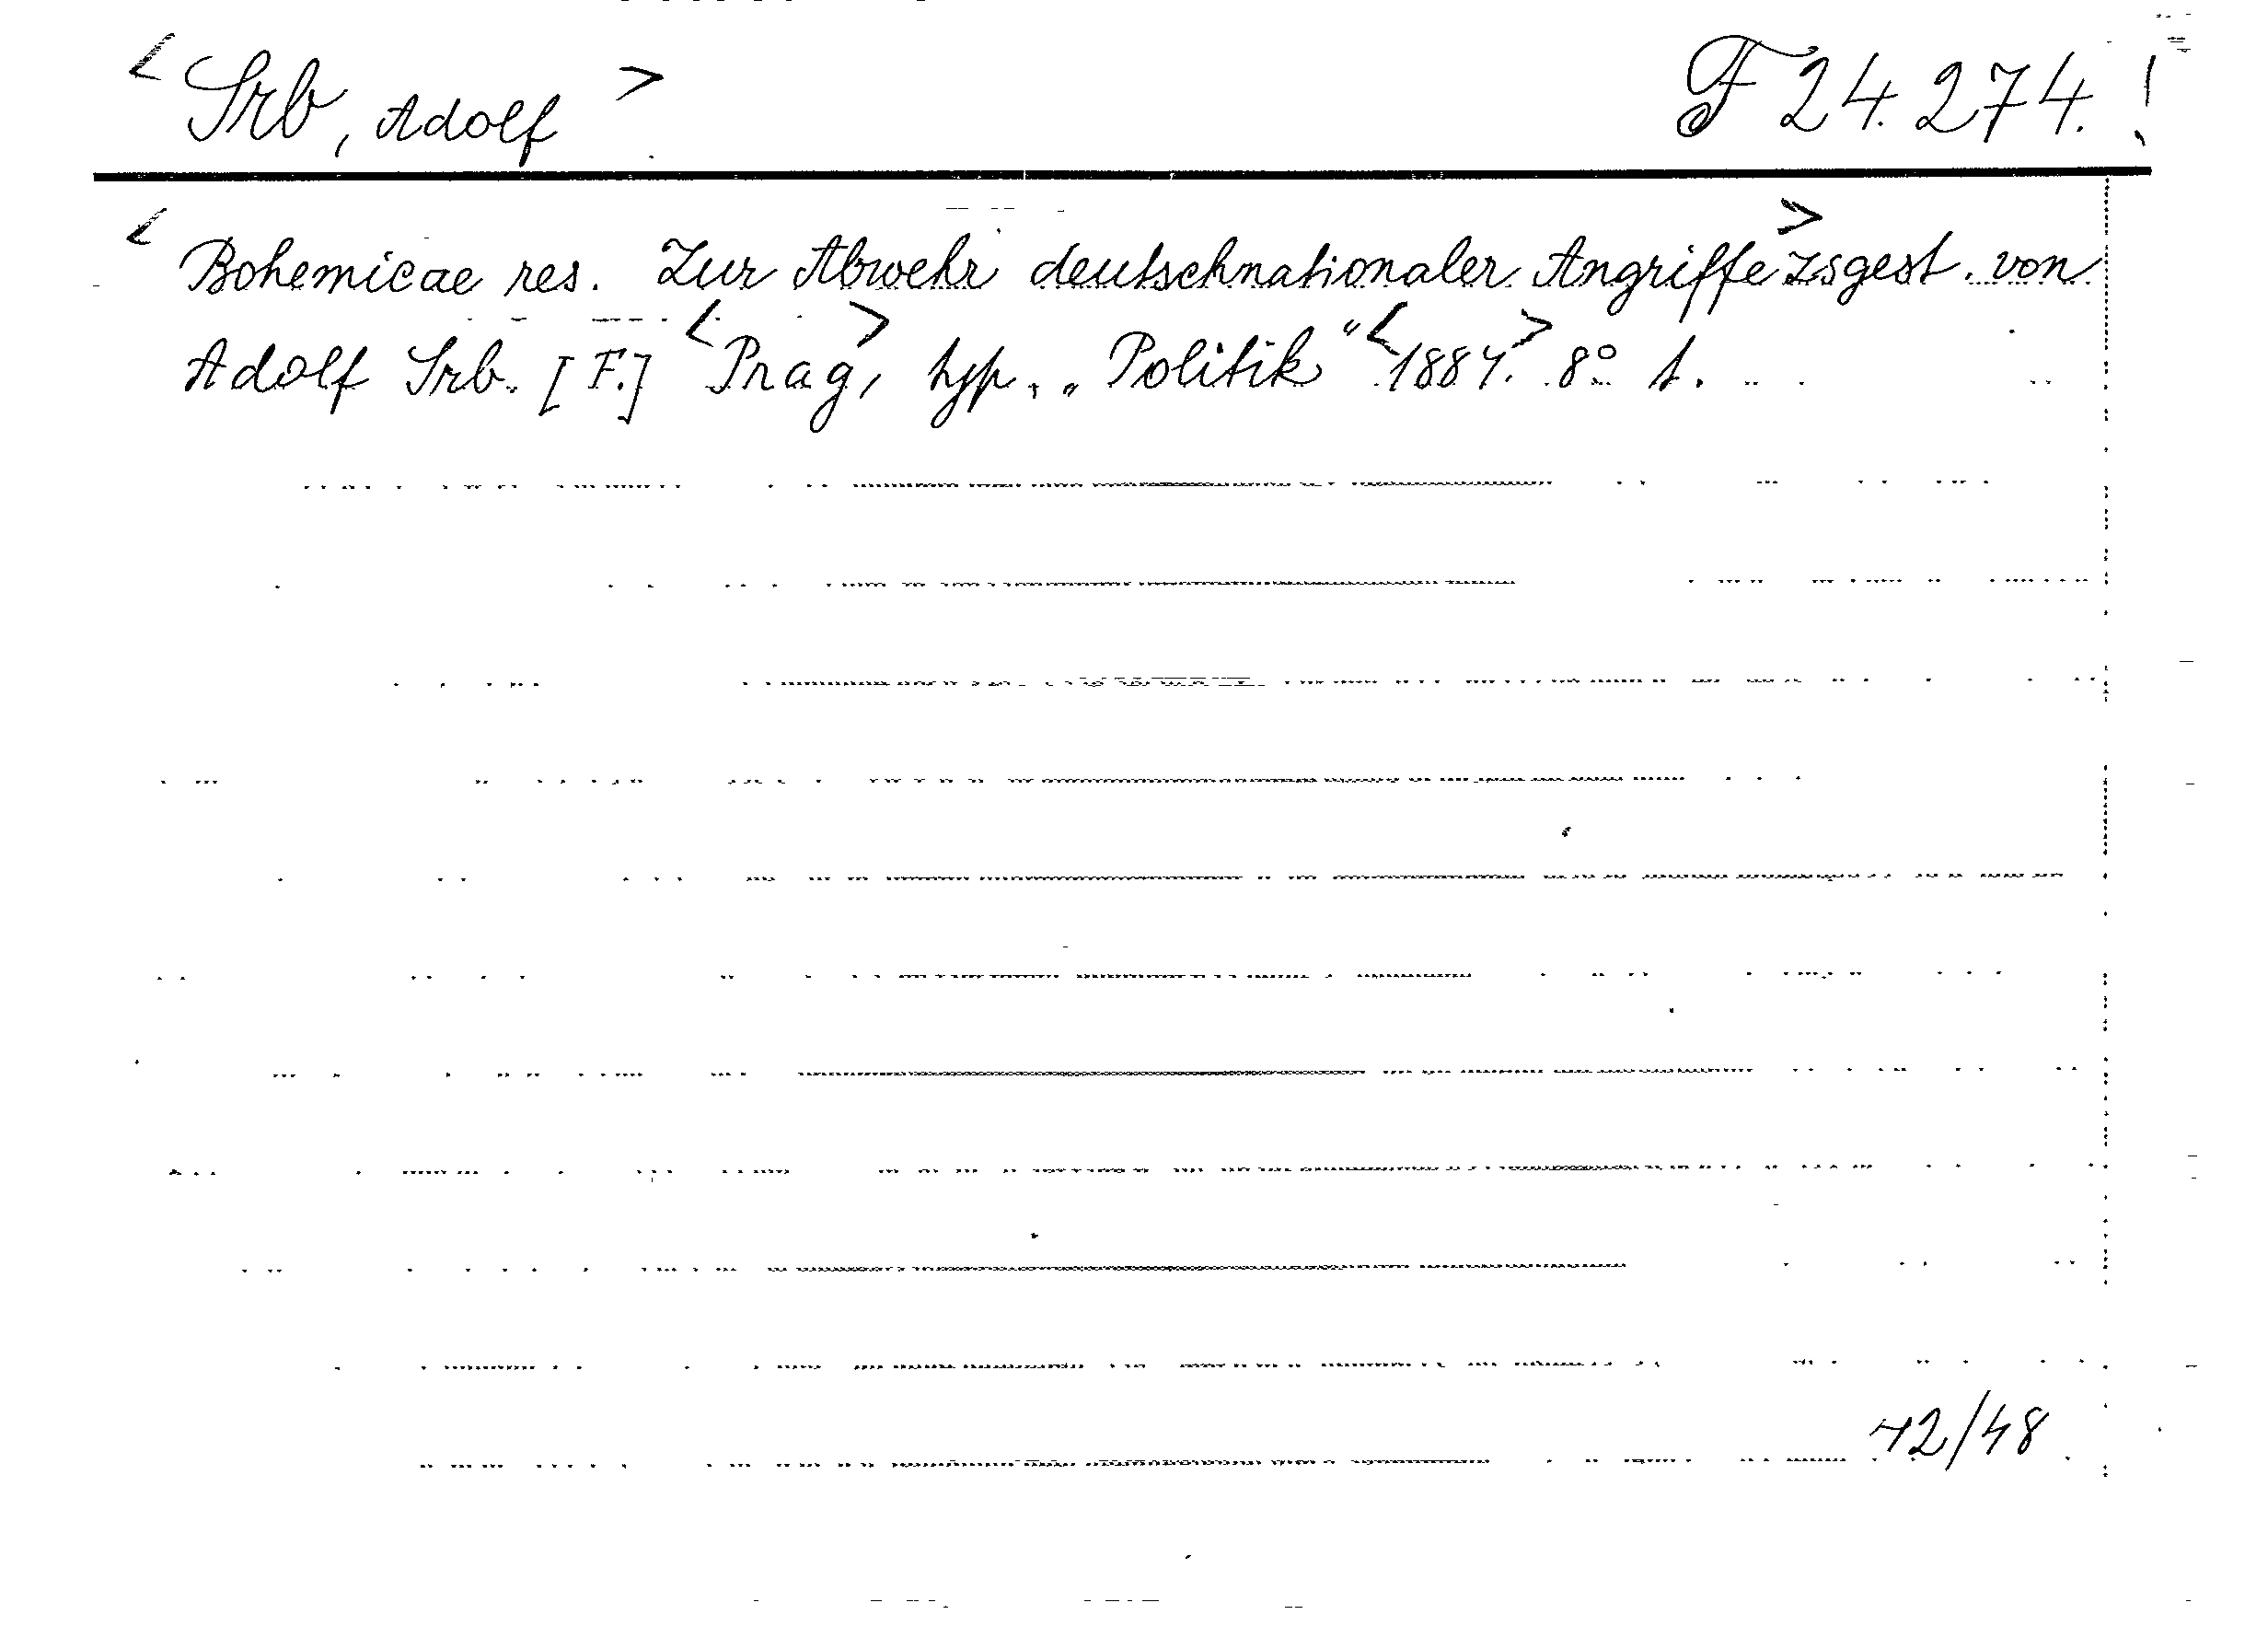 < Srb, Adolf > F 24.274.!
< Bohemicae res. Zur Abwehr deutschnationaler Angriffe > zsgest. von
Adolf Srb. [F.] <Prag>, typ. „Politik“ <1884.> 8° 1.
42/48